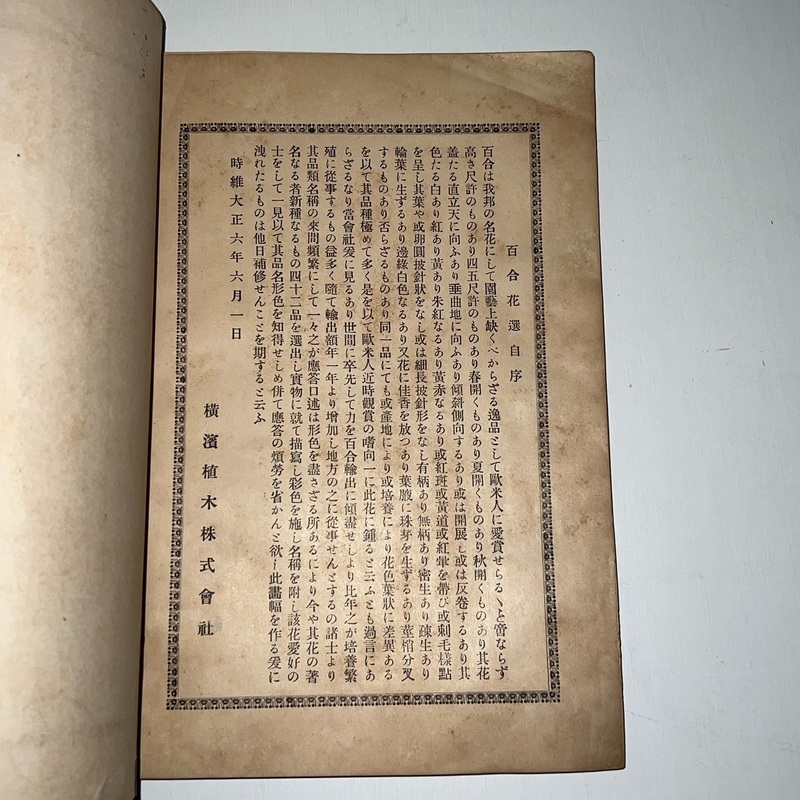 百合花選自序
百合は我邦の名花にして園藝上缺くべからざる逸品として歐米人に愛賞せらるゝと啻ならず
高さ尺許のものあり四五尺許のものあり春開くものあり夏開くものあり秋開くものあり其花
蓋たる直立天に向ふあり垂曲地に向ふあり傾斜側向するあり或は開展し或は反卷するあり其
色たる白あり紅あり黃あり朱紅なるあり黃赤なるあり或紅斑或黃道或紅暈を帶び或剌毛樣點
を呈し其葉や或卵圓披針狀をなし或は細長披針形をなし有柄あり無柄あり密生あり疎生あり
輪葉に生ずるあり邊綠白色なるあり又花に佳香を放つあり葉腋に珠芽を生ずるあり莖梢分叉
するものあり否らざるものあり同一品にても或產地により或培養により花色葉狀に差異ある
を以て其品種極めて多く是を以て歐米人近時觀賞の嗜向一に此花に鍾ると云ふとも過言にあ
らざるなり當會社爰に見るあり世間に卒先して力を百合輸出に傾盡せしより比年之が培養繁
殖に從事するもの益多く隨て輸出額年一年より增加し地方の之に從事せんとするの諸士より
其品類名稱の來問頻繁にして一々之が應答口述は形色を盡さざる所あるにより今や其花の著
名なる者新種なるもの四十二品を選出し實物に就て描寫し彩色を施し名稱を附し該花愛好の
士をして一見以て其品名形色を知得せしめ併て應答の煩勞を省かんと欲し此畵幅を作る爰に
洩れたるものは他日補修せんことを期すると云ふ
時維大正六年六月一日
橫濱植木株式會社